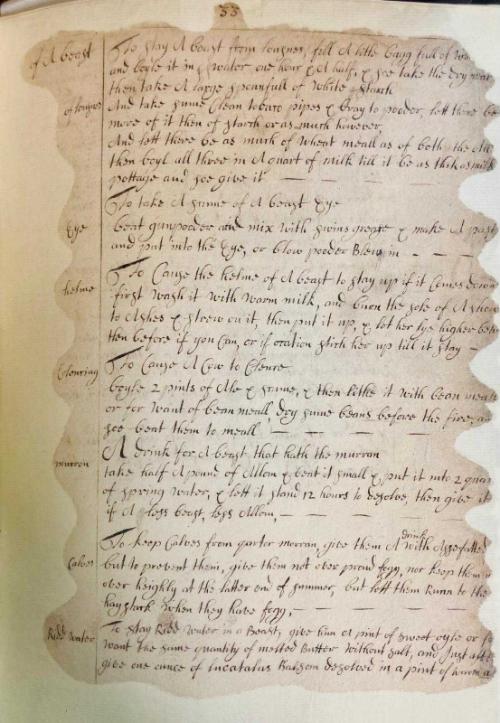 33
of A beast
To stay A beast from lousnes, fill A litle bagg full of
and boyle it in water one hour & A half, & soe take the dry
then take A large spoonfull of white starch
of lousnes
And take sume clean tobaco pipes & bray to pooder, lett there be
more of it then of starch or as much however,
And lett there be as much of wheat meall as of both, the
then boyl all three in A quart of milk till it be as thik as
pottage and soe give it
To take A hume of A beast Eye
Eye
beat gunpooder and mix with swins grease & make A past
and put into the Eye, or blow pooder Blew in
To Cause the kelme of A beast to stay up if it Comes down
kelme
first wash it with warm milk, and burn the sole of A
to Ashes & strew on it, then put it up, & let her lye higher
then before if you Can, or if ocation stich her up till it stay
To Cause A Cow to Clenre
Clenring
boyle 2 pints of Ale & sume, & then lithe it with bean
or for want of bean meall dry sume beans before the fire,
soe beat them to meall
A drink for A beast that hath the murran
murron
take half A pound of Allom & beat it small & put it into 2
of spring water, & lett it stand 12 hours to desolve, then give it
if A less beast, less Allom,
To keep Calves from murran, give them A drink with
Calves
but to prevent them, give them not over proud fogg, nor keep them
over heighly at the latter end of summer, but lett them runn to the
haystack when they have fogg,
To stay Redd water in a Beast, give him a pint of sweet oyle or
Redd water
want the same quantity of melted Butter without salt, and Just
give one ounce of Balsom desolved in a pint of warm